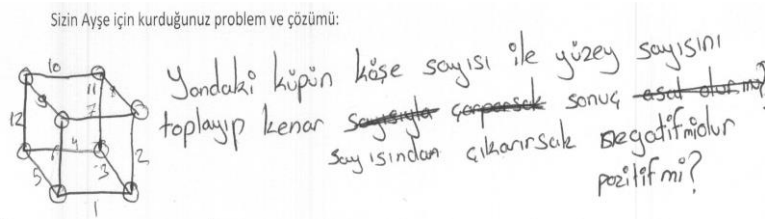 Sizin Ayşe için kurduğunuz problem ve çözümü:
10
Yandaki küpün köşe sayısı ile yüzey sayısını
11
12
7
toplayıp kenar sayısıyla çarparsak sonuç asal olur mu?
sayısından çıkarırsak negatifmiolur
pozitif mi?
4
5
3
2
1